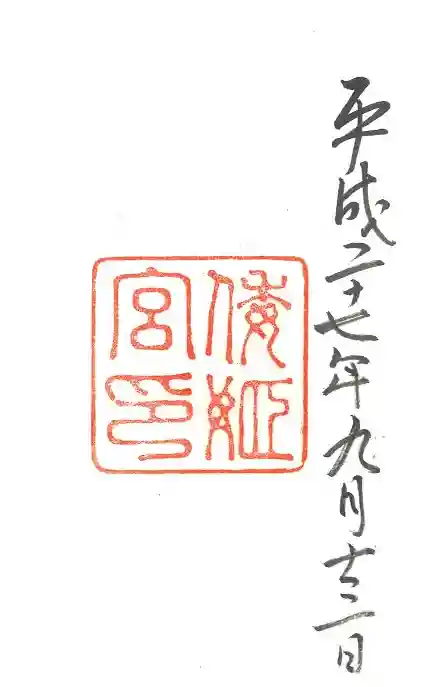 平成二十七年九月十三日
倭姫
宮印